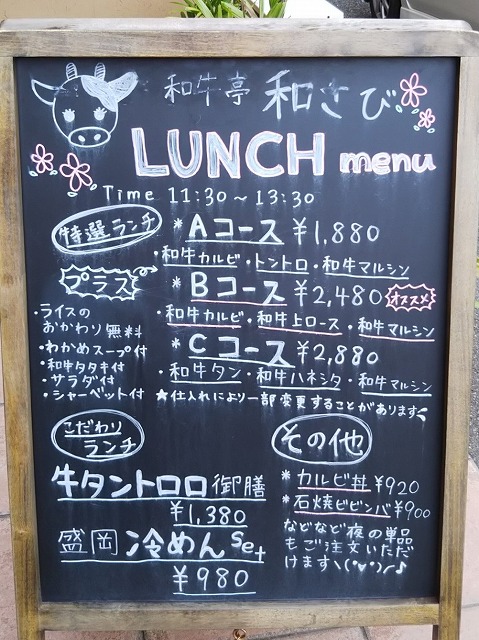 和牛亭 和さび
LUNCH menu
Time 11:30～13:30
特選ランチ
*Aコース ¥1,880
・和牛カルビ・トントロ・和牛マルシン
プラス
*Bコース ¥2,480 オススメ
・和牛カルビ・和牛上ロース・和牛マルシン
*Cコース ¥2,880
・和牛タン・和牛ハネシタ・和牛マルシン
★仕入れにより一部変更することがあります
・ライスの
おかわり無料
・わかめスープ付
・和牛タタキ付
・サラダ付
・シャーベット付
こだわり
ランチ
牛タントロロ御膳
¥1,380
盛岡冷めんset
¥980
その他
*カルビ丼 ¥920
*石焼ビビンバ ¥900
などなど夜の単品
もご注文いただ
けます\(^v^)/♪